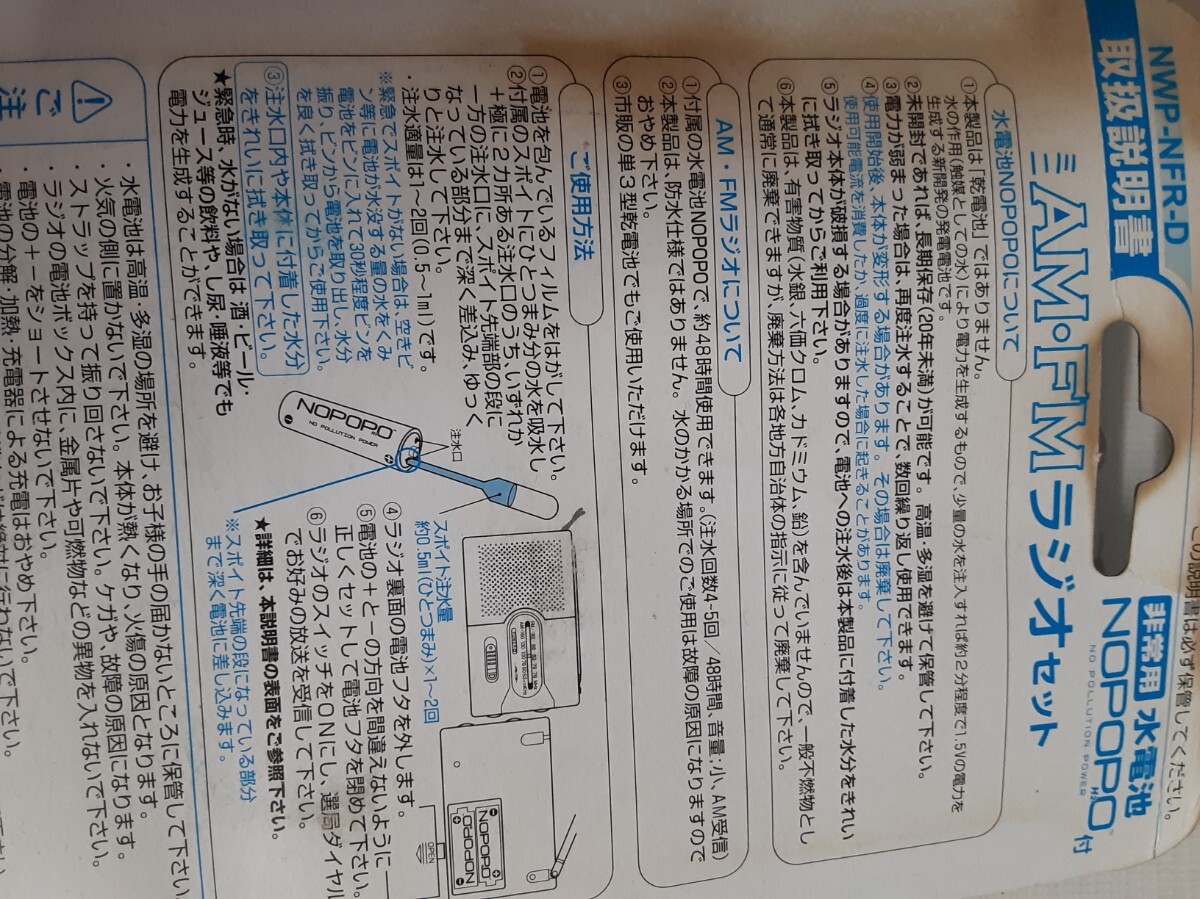 この説明書は必ず保管してください。
NWP-NFR-D
取扱説明書
非常用 水電池
NOPOPO H2O 付
NO POLLUTION POWER
ミニAM・FMラジオセット
水電池NOPOPOについて
①本製品は「乾電池」ではありません。
水の作用(触媒としての水)により電力を生成するもので、少量の水を注入すれば約2分程度で1.5Vの電力を
生成する新開発の発電池です。
②未開封であれば、長期保存(20年未満)が可能です。高温・多湿を避けて保管して下さい。
③電力が弱まった場合は、再度注水することで、数回繰り返し使用できます。
④使用開始後、本体が変形する場合があります。その場合は廃棄して下さい。
使用可能電流を消費したか、過度に注水した場合に起きることがあります。
⑤ラジオ本体が破損する場合がありますので、電池への注水後は本製品に付着した水分をきれい
に拭き取ってからご利用下さい。
⑥本製品は、有害物質(水銀、六価クロム、カドミウム、鉛)を含んでいませんので、一般不燃物とし
て通常に廃棄できますが、廃棄方法は各地方自治体の指示に従って廃棄して下さい。
AM・FMラジオについて
①付属の水電池NOPOPOで、約48時間使用できます。(注水回数4-5回/48時間、音量:小、AM受信)
②本製品は、防水仕様ではありません。水のかかる場所でのご使用は故障の原因になりますので
おやめ下さい。
③市販の単3型乾電池でもご使用いただけます。
ご使用方法
①電池を包んでいるフィルムをはがして下さい。
②付属のスポイトにひとつまみ分の水を吸水し
+極に2カ所ある注水口のうち、いずれか
一方の注水口に、スポイト先端部の段に
なっている部分まで深く差込み、ゆっく
りと注水して下さい。
・注水適量は1~2回(0.5~1ml)です。
※緊急でスポイトがない場合は、空きビ
ン等に電池が水没する量の水をくみ
電池をビンに入れて30秒程度ビンを
振り、ビンから電池を取り出し、水分
を良く拭き取ってからご使用下さい。
③注水口内や本体に付着した水分
をきれいに拭き取って下さい。
★緊急時、水がない場合は 酒・ビール・
ジュース等の飲料や、し尿・唾液等でも
電力を生成することができます。
NOPOPO
NO POLLUTION POWER
注水口
スポイト注水量
約0.5ml(ひとつまみ)×1~2回
OPEN
NOPOPO
NOPOPO
④ラジオ裏面の電池フタを外します。
⑤電池の+と-の方向を間違えないように
正しくセットして電池フタを閉めて下さい。
⑥ラジオのスイッチをONにし、選局ダイヤル
でお好みの放送を受信して下さい。
★詳細は、本説明書の表面をご参照下さい。
※スポイト先端の段になっている部分
まで深く電池に差し込みます。
ご
注
・水電池は高温・多湿の場所を避け、お子様の手の届かないところに保管して下さい
・火気の側に置かないで下さい。本体が熱くなり、火傷の原因となります。
・ストラップを持って振り回さないで下さい。ケガや、故障の原因になります。
・ラジオの電池ボックス内に、金属片や可燃物などの異物を入れないで下さい。
・電池の+-をショートさせないで下さい。
・電池の分解・加熱・充電器による充電はおやめ下さい。